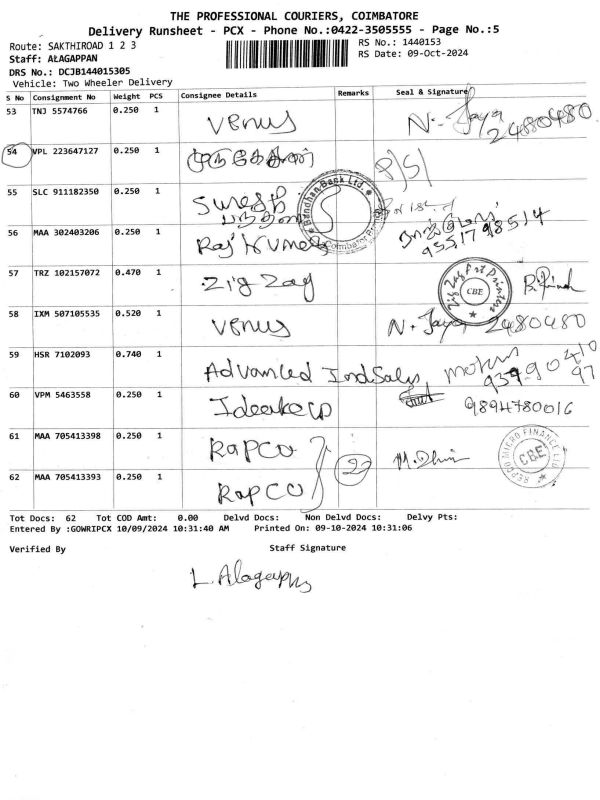 THE PROFESSIONAL COURIERS, COIMBATORE
Delivery Runsheet - PCX - Phone No.:0422-3505555 - Page No.:5
Route: SAKTHIROAD 1 2 3
RS No.: 1440153
Staff: ALAGAPPAN
RS Date: 09-Oct-2024
DRS No.: DCJB144015305
Vehicle: Two Wheeler Delivery
S No Consignment No Weight PCS Consignee Details Remarks Seal & Signature
53 TNJ 5574766 0.250 1 Venus N. Jaya 2480480
54 VPL 223647127 0.250 1 முருகேசன்
55 SLC 911182350 0.250 1 Suresh
Bandhan Bank Ltd.
Coimbatore
56 MAA 302403206 0.250 1 Raj Kumar
57 TRZ 102157072 0.470 1 Zig Zag
Zig Zag Art Printers
CBE
58 IXM 507105535 0.520 1 Venus N. Jaya 2480480
59 HSR 7102093 0.740 1 Advanced
60 VPM 5463558 0.250 1 9894780016
61 MAA 705413398 0.250 1 RapCo
2
REPCO MICRO FINANCE LTD
CBE
62 MAA 705413393 0.250 1 RapCo
Tot Docs: 62 Tot COD Amt: 0.00 Delvd Docs: Non Delvd Docs: Delvy Pts:
Entered By :GOWRIPCX 10/09/2024 10:31:40 AM Printed On: 09-10-2024 10:31:06
Verified By Staff Signature
L. Alagappan